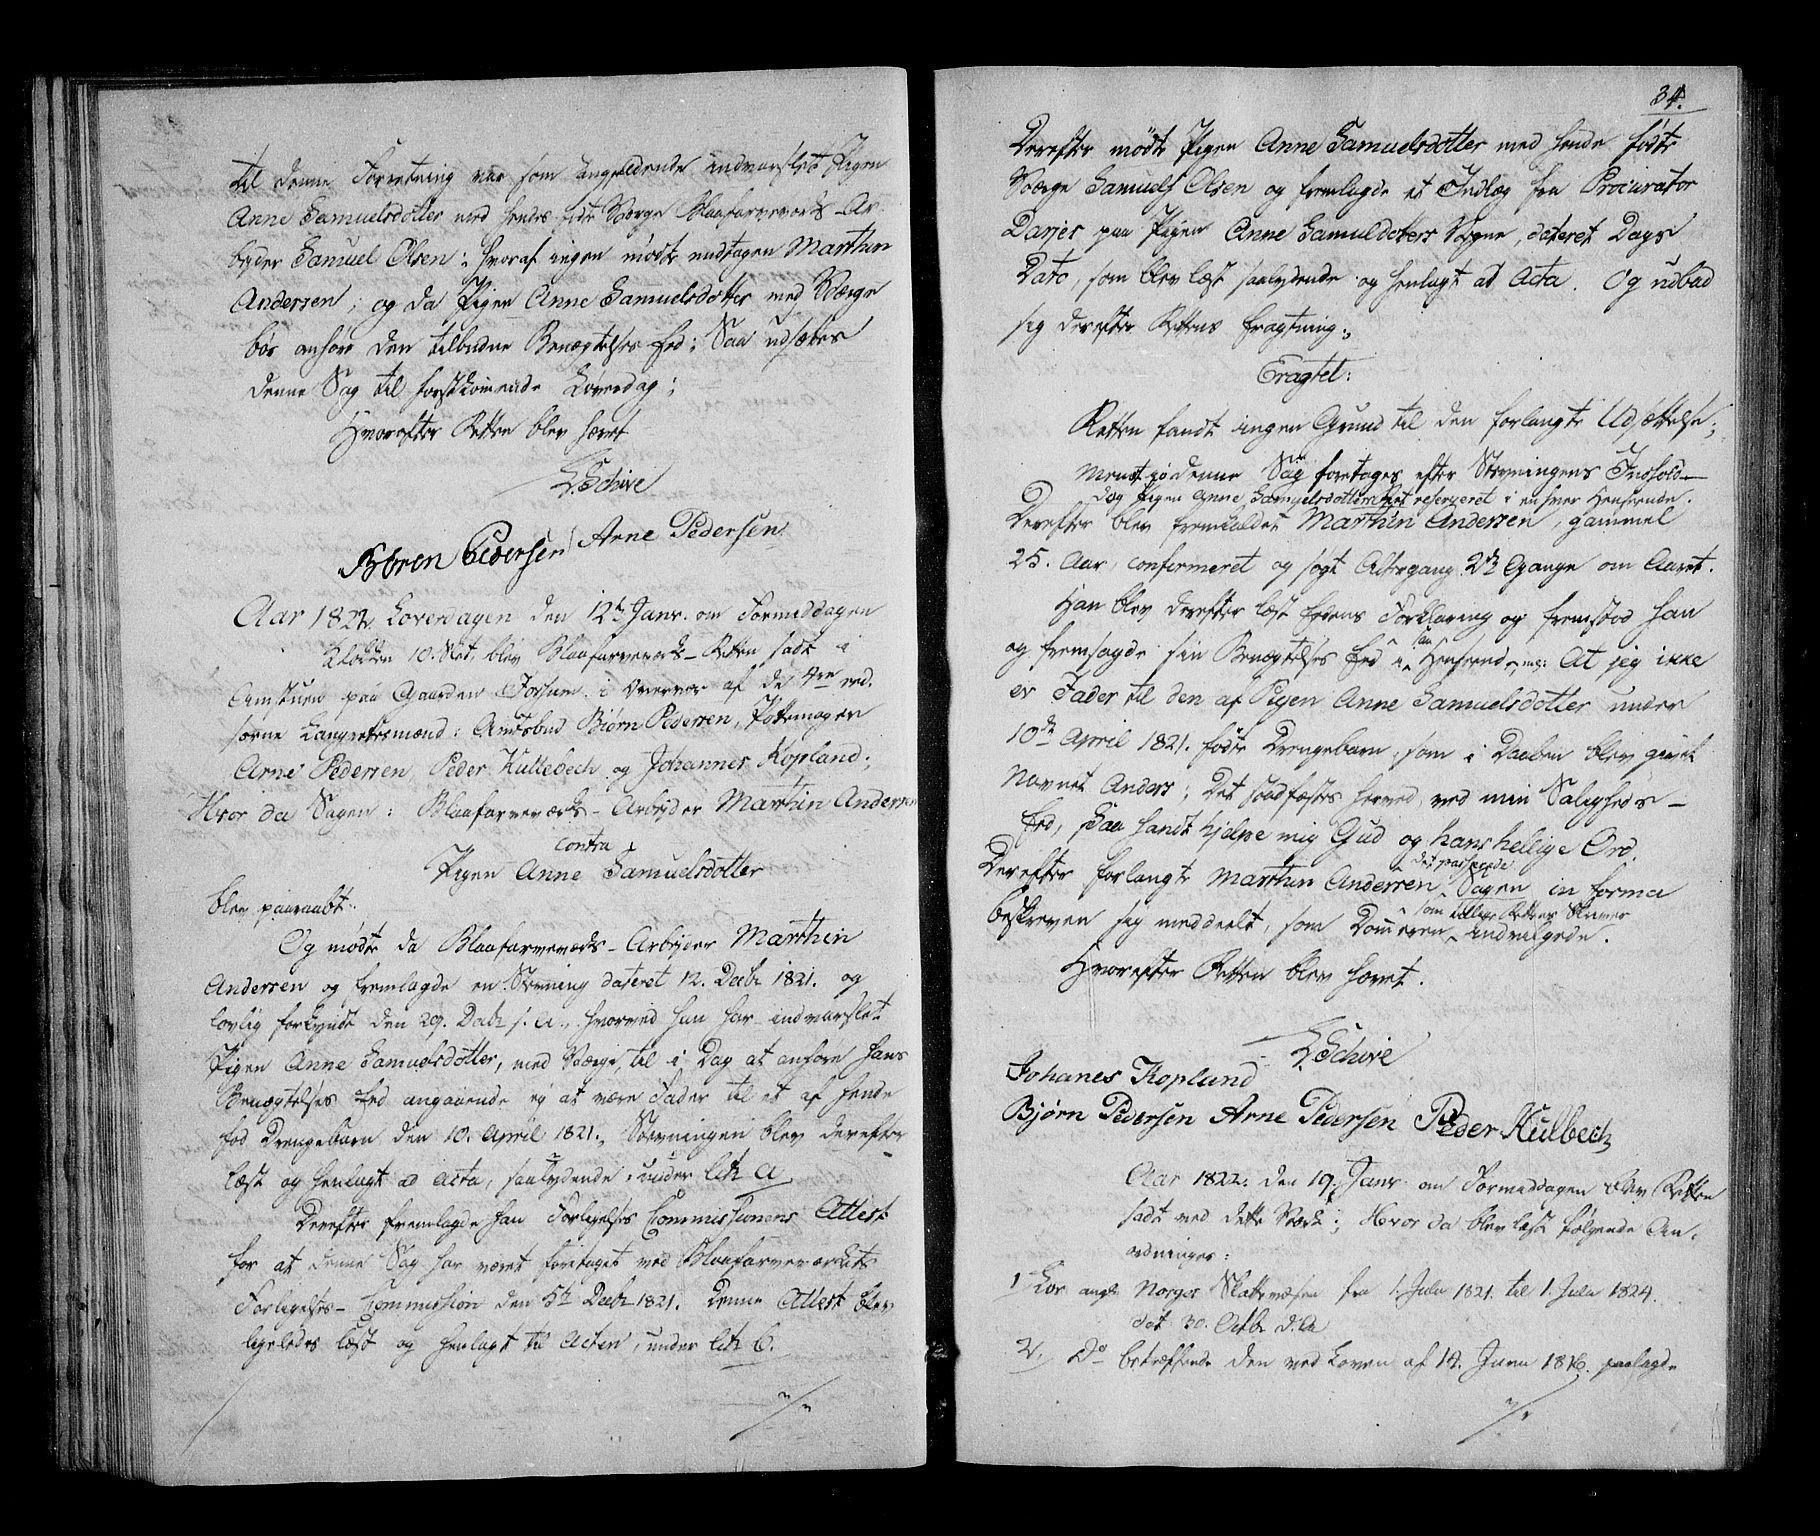 til denne Forretning var som angjældende indvarslet Pigen
Anne Samuelsdotter med hendes fødte Værge Blaafarveværks-Ar-
beyder Samuel Olsen: hvoraf ingen mødte undtagen Marthin
Andersen; og da Pigen Anne Samuelsdotter med Værge
bør anhøre den tilbudne Benægtelses Eed; Saa udsættes
denne Sag til førstkomende Løverdag;
Hvorefter Retten blev hævet
L. Schive
Børen Pedersen Arne Pedersen
Aar 1822. Løverdagen den 12te Janr. om Formiddagen
Klokken 10. Slet, blev Blaafarveværks-Retten sadt i
Amtstuen paa Gaarden Fossum i Overvær af de 4re eed.
sorne Laugrettesmænd: Amtsbud Bjørn Pedersen, Pottemager
Arne Pedersen Peder Kullebech og Johannes Kopland;
Hvor da Sagen: Blaafarveværks-Arbeyder Marthin Andersen
contra
Pigen Anne Samuelsdotter
blev paaraabt.
Og mødte da Blaafarveværks-Arbeyder Marthin
Andersen og fremlagde en Stevning dateret 12. Decbr 1821. og
lovlig forkyndt den 29. Decbr s. A., hvorved han har indvarslet
Pigen Anne Samuelsdotter, med Værge, til i Dag at anhøre hans
Benægtelses Eed angaaende ej at være Fader til et af hende
fød Drengebarn den 10. April 1821., Stevningen blev derefter
læst og henlagt ad acta, saalydende, under Litr A
Derefter fremlagde han Forligelses Commissionens Attest
for at denne Sag har været foretaget ved Blaafarveværkets
Forligelses-Commission den 5te Decbr 1821. Denne Attest blev
ligeledes læst og henlagt til Acten, under Litr b.
34.
Derefter mødte Pigen Anne Samuelsdotter med hende fødte
Værge Samuel Olsen og fremlagde et Indlæg fra Procurator
Darjes paa Pigen Anne Samuldoters Vegne, dateret Dags
Dato, som blev læst saalydende og henlagt ad Acta. Og udbad
sig derefter Rettens Eragtning;
Eragtet:
Retten fandt ingen Grund til den forlangte Udsættelse;
denne Sag foretages efter Stevningens Indhold
dog Pigen Anne Samuelsdotters Ret reserveret i enhver Henseende.
Derefter blev fremkaldet Marthin Andersen, gammel
25. Aar, confirmeret og søgt Altergang 2de Gange om Aaret.
Han blev derefter læst Eedens Forklaring og fremstod han
og fremsagde sin Benægtelses Eed i saa Henseende, nl: At jeg ikke
er Fader til den af Pigen Anne Samuelsdotter under
10de April 1821. fødte Drengebarn, som i Daaben blev givet
Navnet Anders; Det stadfæstes herved ved min Saligheds-
Eed, saa sandt hjelpe mig Gud og hans hellige Ord.
Derefter forlangte Marthin Andersen det passerede i Sagen in forma
beskreven sig meddeelt, som Dommeren som tillige Rettens Skriver indvilgede.
Hvorefter Retten blev hævet.
L. Schive
Johanes Kopland
Bjørn Pedersen Arne Pedersen Peder Kulbech
Aar 1822. den 19. Janr om Formiddagen blev Retten
sadt ved dette Værk; Hvor da blev læst følgende An-
ordninger:
1 Lov angl. Norges Skattevæsen fra 1. Julii 1821 til 1. Julii 1824.
dat 30. Octbr d. A
2. Do betræffende den ved Loven af 14. Junii 1816. paalagde